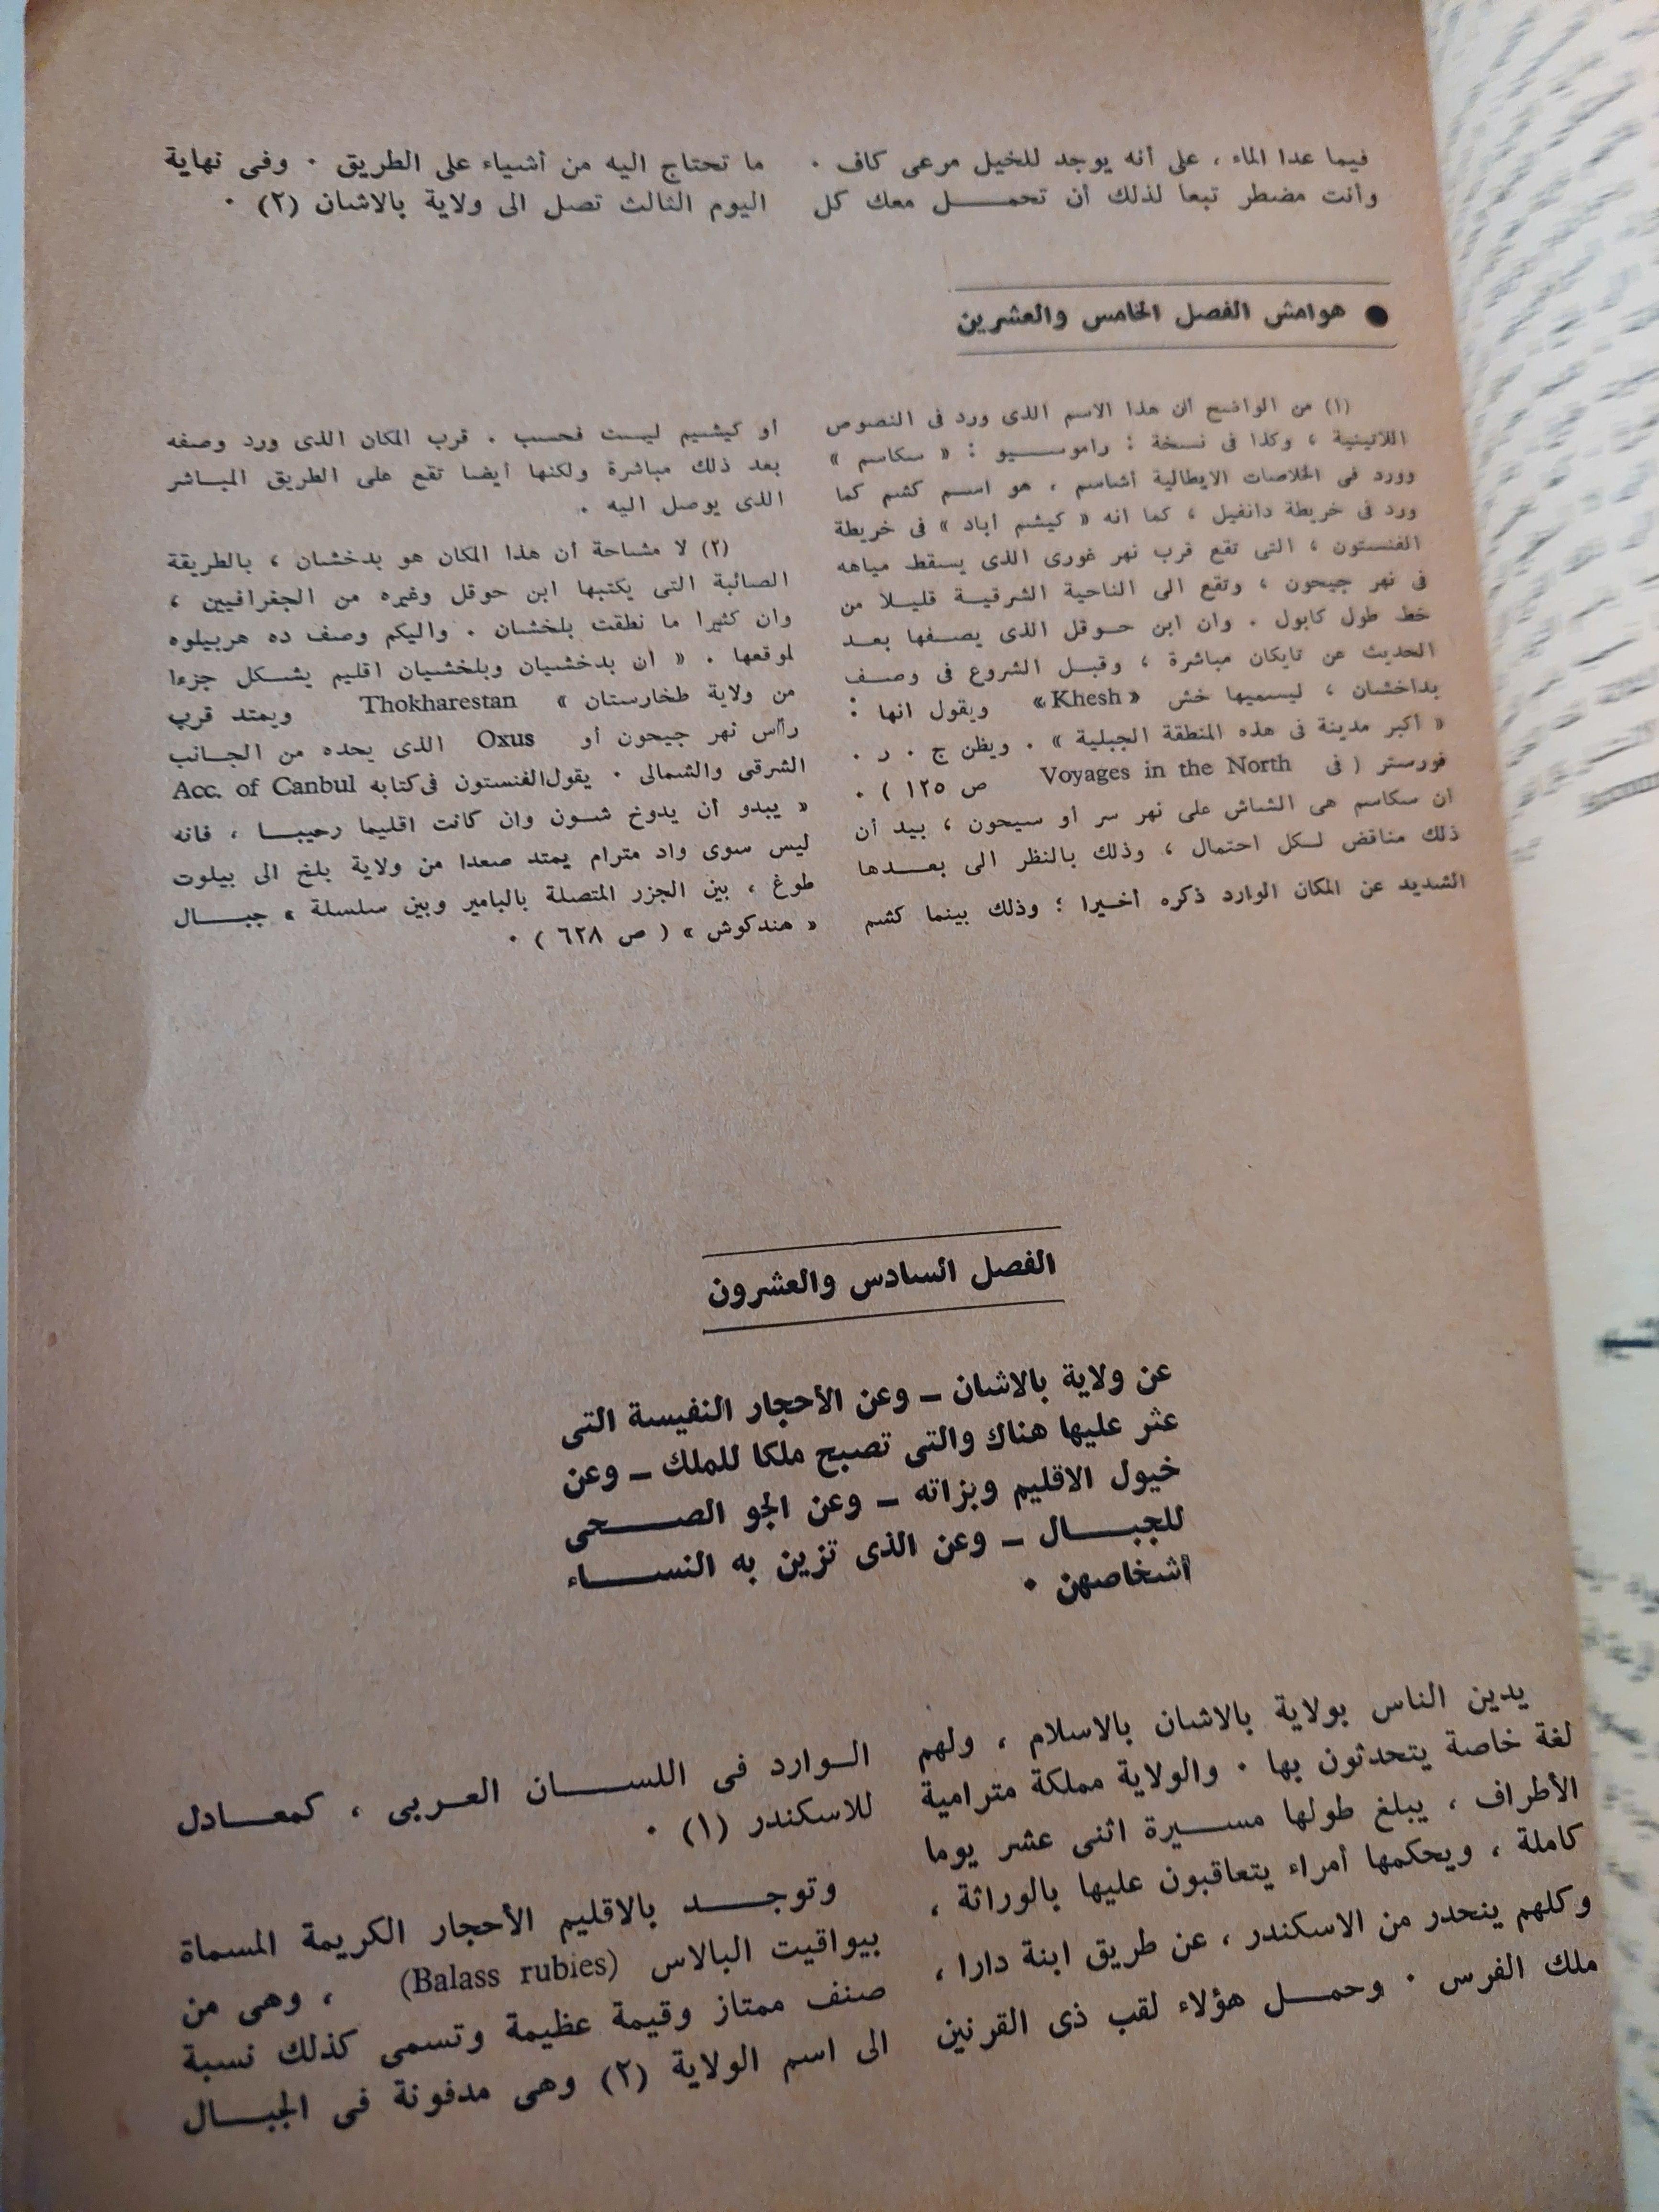 فيما عدا الماء ، على أنه يوجد للخيل مرعى كاف ٠
وأنت مضطر تبعا لذلك أن تحمل معك كل
ما تحتاج اليه من أشياء على الطريق ٠ وفى نهاية
اليوم الثالث تصل الى ولاية بالاشان (٢) ٠
● هوامش الفصل الخامس والعشرين
(١) من الواضح أن هذا الاسم الذى ورد فى النصوص
اللاتينية ، وكذا فى نسخة : راموسيو : « سكاسم »
وورد فى الخلاصات الايطالية أشاسم ، هو اسم كشم كما
ورد فى خريطة دانفيل ، كما انه « كيشم أباد » فى خريطة
الفنستون ، التى تقع قرب نهر غورى الذى يسقط مياهه
فى نهر جيحون ، وتقع الى الناحية الشرقية قليلا من
خط طول كابول ٠ وان ابن حوقل الذى يصفها بعد
الحديث عن تايكان مباشرة ، وقبل الشروع فى وصف
بداخشان ، ليسميها خش « Khesh » ويقول انها :
« أكبر مدينة فى هذه المنطقة الجبلية » ٠ ويظن ج ٠ ر ٠
فورستر ( فى Voyages in the North ص ١٢٥ ) ٠
ان سكاسم هى الشاش على نهر سر أو سيحون ، بيد أن
ذلك مناقض لكل احتمال ، وذلك بالنظر الى بعدها
الشديد عن المكان الوارد ذكره أخيرا ؛ وذلك بينما كشم
أو كيشيم ليست فحسب ٠ قرب المكان الذى ورد وصفه
بعد ذلك مباشرة ولكنها أيضا تقع على الطريق المباشر
الذى يوصل اليه ٠
(٢) لا مشاحة أن هذا المكان هو بدخشان ، بالطريقة
الصائبة التى يكتبها ابن حوقل وغيره من الجغرافيين ،
وان كثيرا ما نطقت بلخشان ٠ واليكم وصف ده هربيلوه
لموقعها ٠ « ان بدخشيان وبلخشيان اقليم يشكل جزءا
من ولاية طخارستان » Thokharestan ويمتد قرب
رأس نهر جيحون أو Oxus الذى يحده من الجانب
الشرقى والشمالى ٠ يقول الفنستون فى كتابه Acc. of Canbul
« يبدو أن يدوخ شون وان كانت اقليما رحيبا ، فانه
ليس سوى واد مترام يمتد صعدا من ولاية بلخ الى بيلوت
طوغ ، بين الجزر المتصلة بالبامير وبين سلسلة » جبال
« هندكوش » ( ص ٦٢٨ ) ٠
الفصل السادس والعشرون
عن ولاية بالاشان ــ وعن الأحجار النفيسة التى
عثر عليها هناك والتى تصبح ملكا للملك ــ وعن
خيول الاقليم وبزاته ــ وعن الجو الصحى
للجبال ــ وعن الذى تزين به النساء
أشخاصهن ٠
يدين الناس بولاية بالاشان بالاسلام ، ولهم
لغة خاصة يتحدثون بها ٠ والولاية مملكة مترامية
الأطراف ، يبلغ طولها مسيرة اثنى عشر يوما
كاملة ، ويحكمها أمراء يتعاقبون عليها بالوراثة ،
وكلهم ينحدر من الاسكندر ، عن طريق ابنة دارا ،
ملك الفرس ٠ وحمل هؤلاء لقب ذى القرنين
الوارد فى اللسان العربى ، كمعادل
للاسكندر (١) ٠
وتوجد بالاقليم الأحجار الكريمة المسماة
بيواقيت البالاس (Balass rubies) ، وهى من
صنف ممتاز وقيمة عظيمة وتسمى كذلك نسبة
الى اسم الولاية (٢) وهى مدفونة فى الجبال